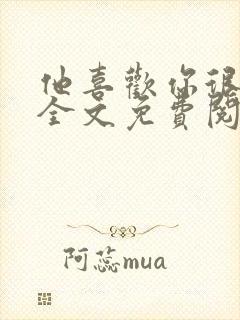 他喜歡你很
全文免費閱
阿蕊mua